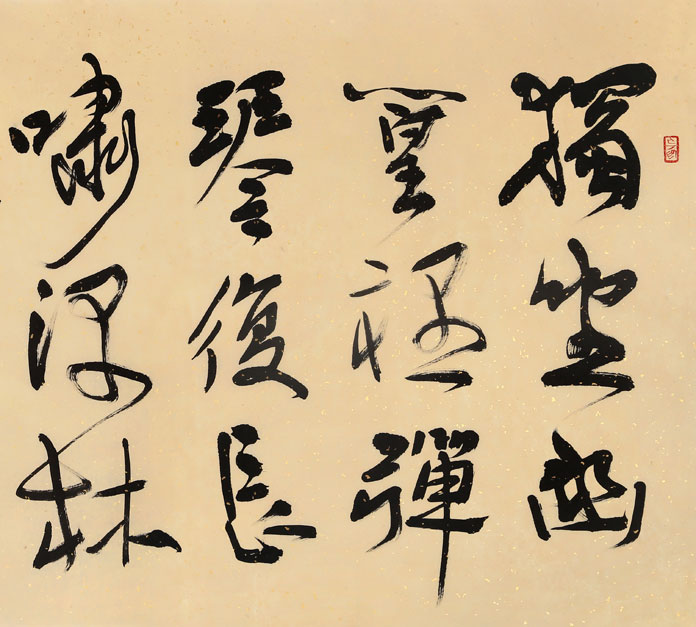 獨坐幽
篁裡彈
琴復長
嘯深林